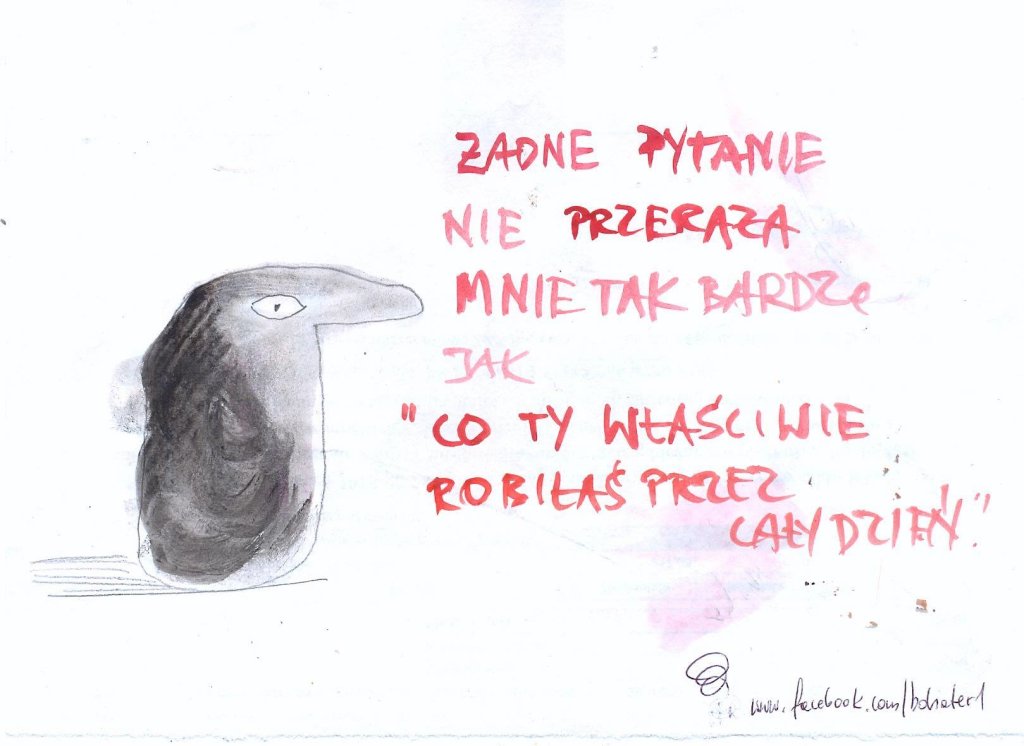 ŻADNE PYTANIE
NIE PRZERAŻA
MNIE TAK BARDZO
JAK
"CO TY WŁAŚCIWIE
ROBIŁAŚ PRZEZ
CAŁY DZIEŃ."
www.facebook.com/bohater1